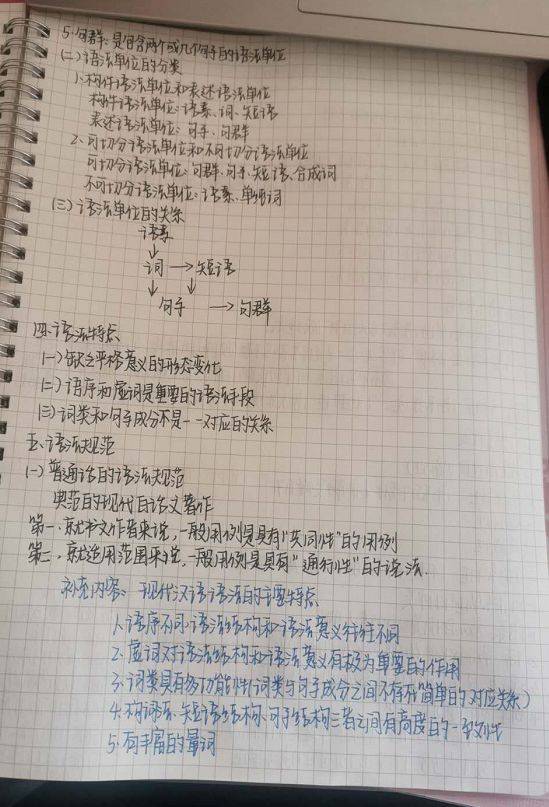 5.句群:是包含两个或几个句子的语法单位
(二)语法单位的分类
1.构件语法单位和表述语法单位
构件语法单位:语素、词、短语
表述语法单位:句子、句群
2.可切分语法单位和不可切分语法单位
可切分语法单位:句群、句子、短语、合成词
不可切分语法单位:语素、单纯词
(三)语法单位的关系
语素
↓
词 → 短语
↓ ↓
句子 → 句群
四.语法特点
(一)缺乏严格意义的形态变化
(二)语序和虚词是重要的语法手段
(三)词类和句子成分不是一一对应的关系
五.语法规范
(一)普通话的语法规范
典范的现代白话文著作
第一,就书文作者来说,一般用例是具有"共同性"的用例
第二,就适用范围来说,一般用例是具有"通行性"的说法.
补充内容:现代汉语语法的主要特点
1.语序不同,语法结构和语法意义往往不同
2.虚词对语法结构和语法意义有极为重要的作用
3.词类具有多功能性(词类与句子成分之间不存在简单的对应关系)
4.构词法、短语结构、句子结构三者之间有高度的一致性
5.有丰富的量词